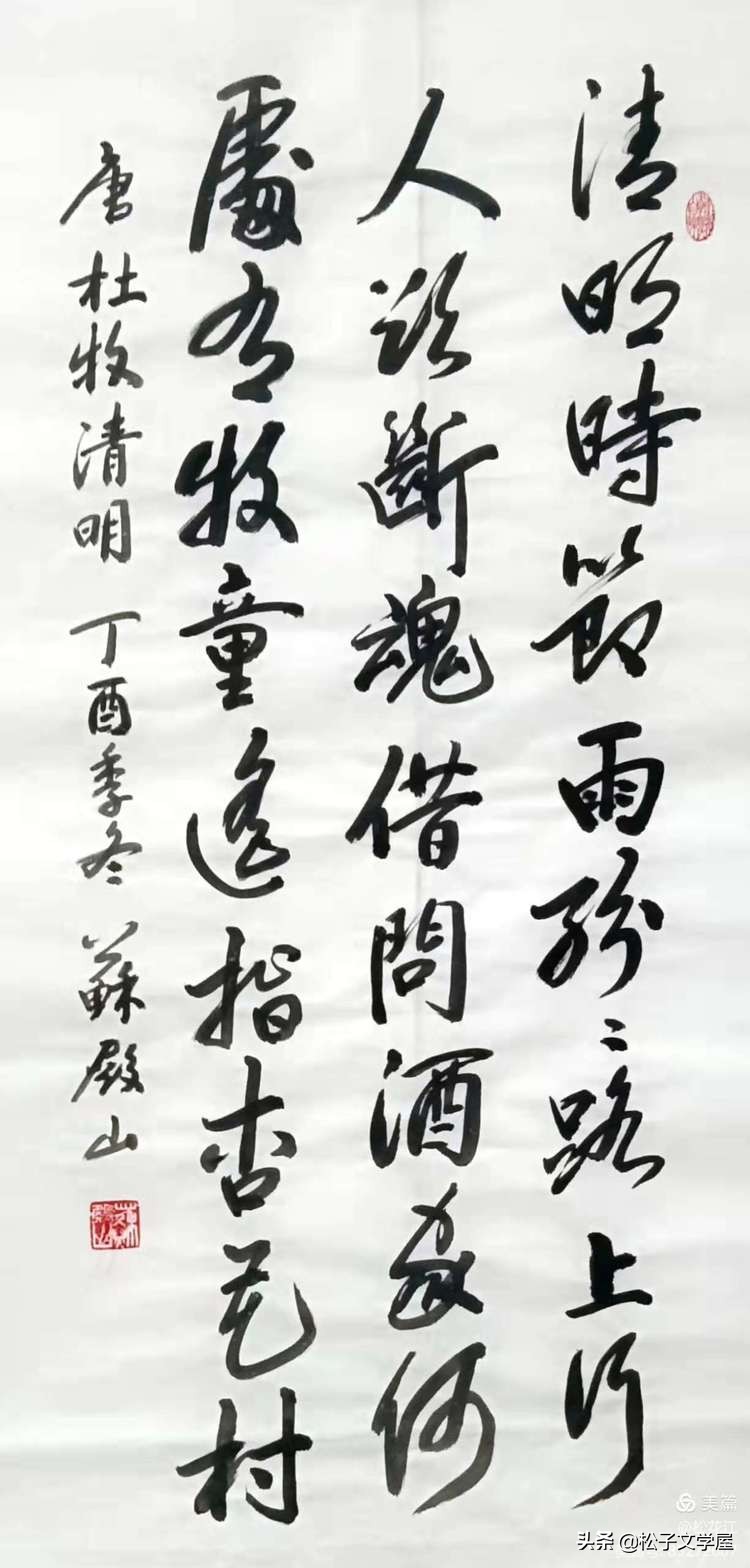 清明時節雨紛〻路上行
人欲斷魂借問酒家何
處有牧童遙指杏花村
唐杜牧清明 丁酉季冬 蘇殿山
美篇
头条 @松子文学屋